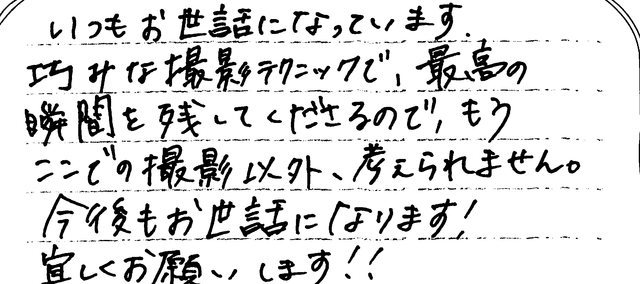 いつもお世話になっています.
巧みな撮影テクニックで、最高の
瞬間を残してくださるので、もう
ここでの撮影以外、考えられません。
今後もお世話になります!
宜しくお願いします!!